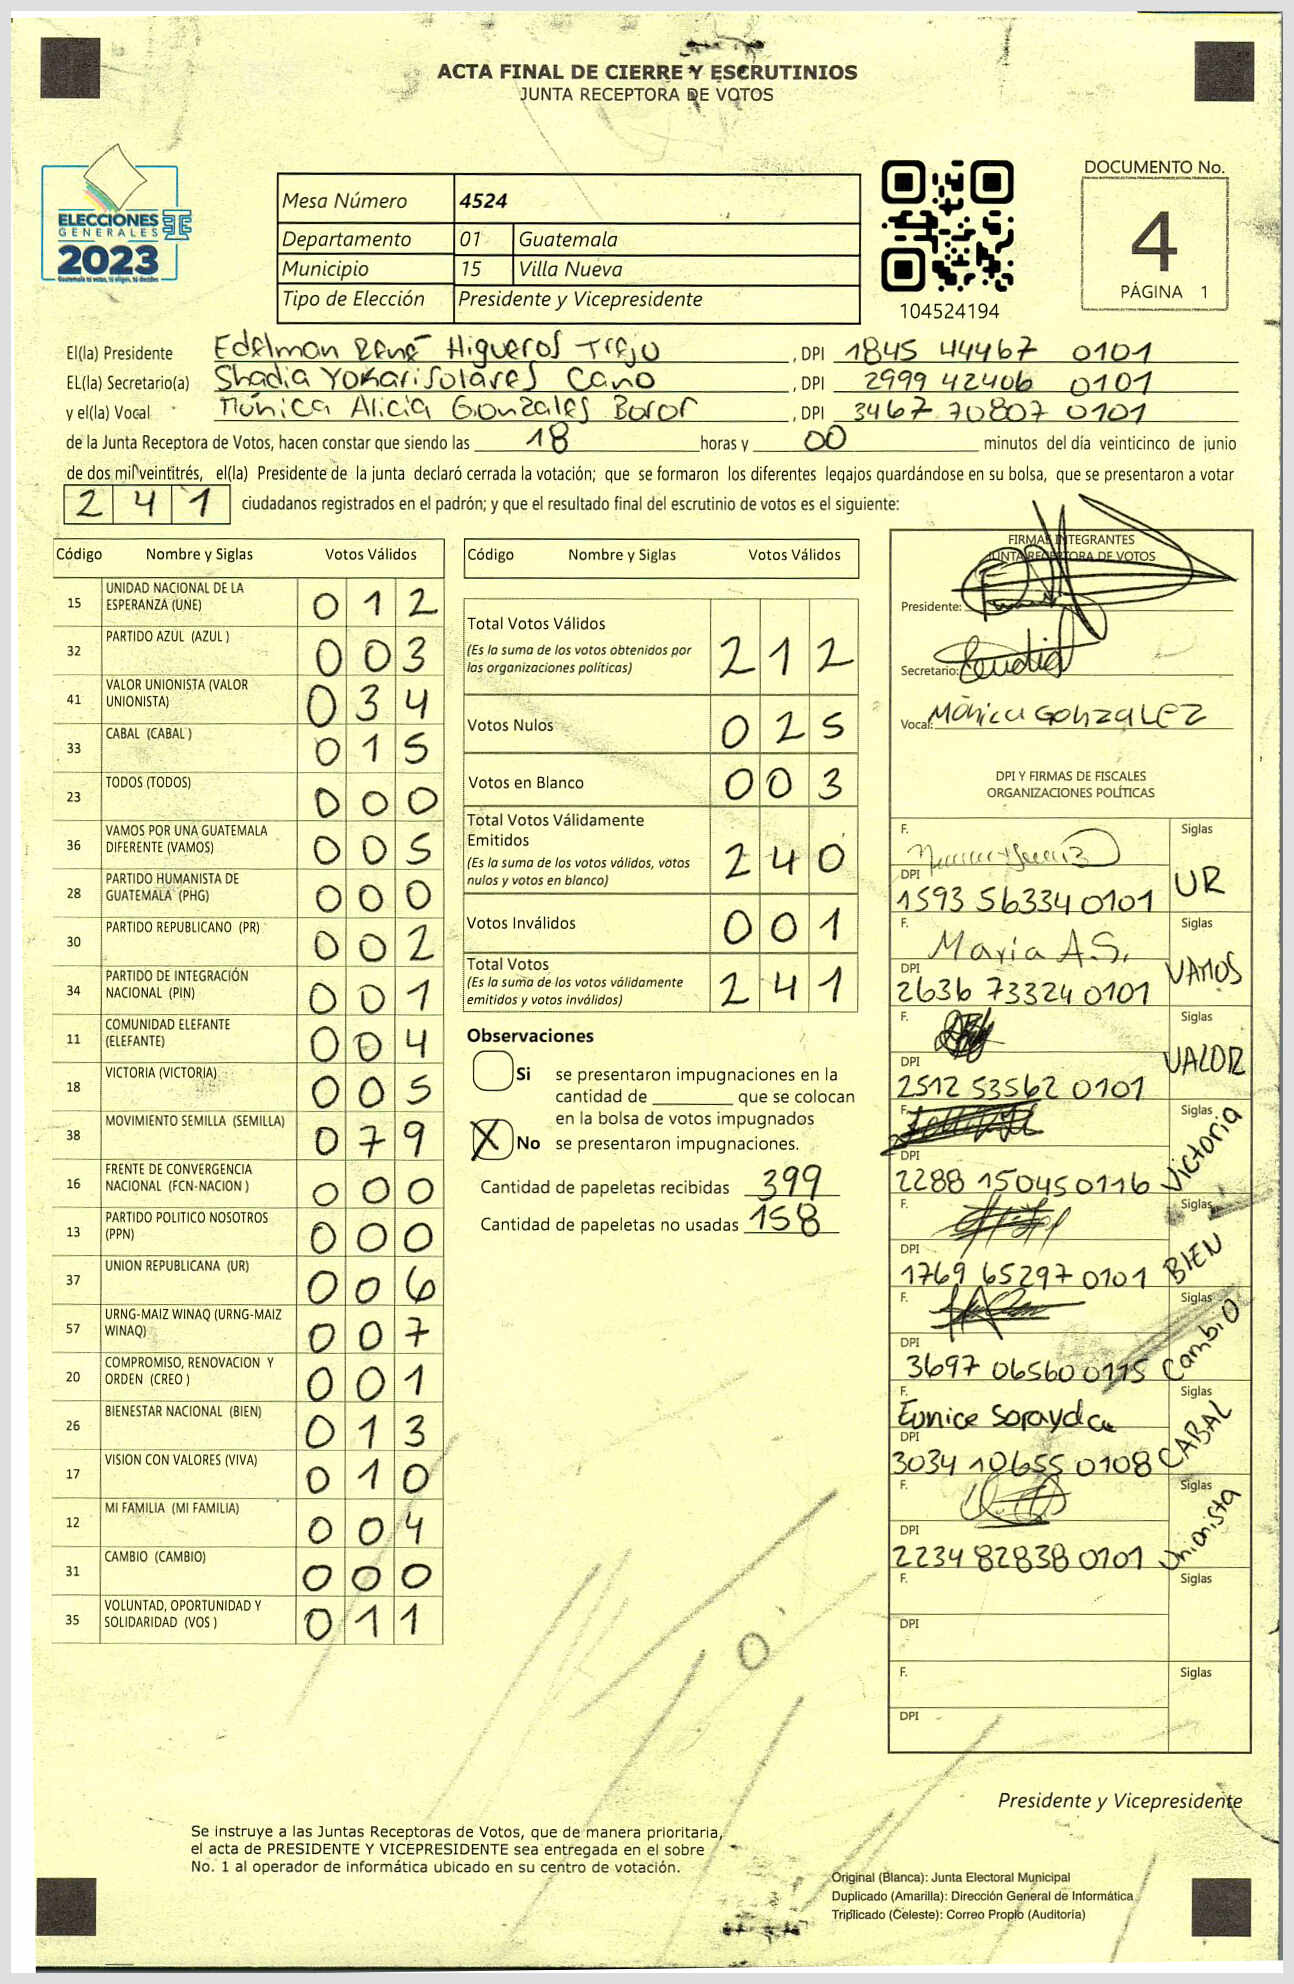 ACTA FINAL DE CIERRE Y ESCRUTINIOS
JUNTA RECEPTORA DE VOTOS
ELECCIONES
GENERALES
2023
Guatemala tú votas, tú eliges, tú decides
Mesa Número 4524
Departamento 01 Guatemala
Municipio 15 Villa Nueva
Tipo de Elección Presidente y Vicepresidente
104524194
DOCUMENTO No.
4
PÁGINA 1
El(la) Presidente Edelman René Higueros Trejo, DPI 1845 44467 0101
EL(la) Secretario(a) Shadia Yokari Solares Cano, DPI 2999 42406 0101
y el(la) Vocal Mónica Alicia Gonzales Boror, DPI 3467 70807 0101
de la Junta Receptora de Votos, hacen constar que siendo las 18 horas y 00 minutos del día veinticinco de junio
de dos mil veintitrés, el(la) Presidente de la junta declaró cerrada la votación; que se formaron los diferentes legajos guardándose en su bolsa, que se presentaron a votar
241 ciudadanos registrados en el padrón; y que el resultado final del escrutinio de votos es el siguiente:
Código Nombre y Siglas Votos Válidos
15 UNIDAD NACIONAL DE LA ESPERANZA (UNE) 012
32 PARTIDO AZUL (AZUL ) 003
41 VALOR UNIONISTA (VALOR UNIONISTA) 034
33 CABAL (CABAL ) 015
23 TODOS (TODOS) 000
36 VAMOS POR UNA GUATEMALA DIFERENTE (VAMOS) 005
28 PARTIDO HUMANISTA DE GUATEMALA (PHG) 000
30 PARTIDO REPUBLICANO (PR) 002
34 PARTIDO DE INTEGRACIÓN NACIONAL (PIN) 001
11 COMUNIDAD ELEFANTE (ELEFANTE) 004
18 VICTORIA (VICTORIA) 005
38 MOVIMIENTO SEMILLA (SEMILLA) 079
16 FRENTE DE CONVERGENCIA NACIONAL (FCN-NACION ) 000
13 PARTIDO POLITICO NOSOTROS (PPN) 000
37 UNION REPUBLICANA (UR) 006
57 URNG-MAIZ WINAQ (URNG-MAIZ WINAQ) 007
20 COMPROMISO, RENOVACION Y ORDEN (CREO ) 001
26 BIENESTAR NACIONAL (BIEN) 013
17 VISION CON VALORES (VIVA) 010
12 MI FAMILIA (MI FAMILIA) 004
31 CAMBIO (CAMBIO) 000
35 VOLUNTAD, OPORTUNIDAD Y SOLIDARIDAD (VOS ) 011
Código Nombre y Siglas Votos Válidos
Total Votos Válidos 212
(Es la suma de los votos obtenidos por
las organizaciones políticas)
Votos Nulos 025
Votos en Blanco 003
Total Votos Válidamente
Emitidos 240
(Es la suma de los votos válidos, votos
nulos y votos en blanco)
Votos Inválidos 001
Total Votos 241
(Es la suma de los votos válidamente
emitidos y votos inválidos)
Observaciones
Si se presentaron impugnaciones en la
cantidad de ________ que se colocan
en la bolsa de votos impugnados
X No se presentaron impugnaciones.
Cantidad de papeletas recibidas 399
Cantidad de papeletas no usadas 158
0
FIRMAS INTEGRANTES
JUNTA RECEPTORA DE VOTOS
Presidente:
Secretario:
Vocal: Mónica GONZALEZ
DPI Y FIRMAS DE FISCALES
ORGANIZACIONES POLÍTICAS
F. Siglas
DPI 1593 56334 0101 UR
F. Maria A.S. Siglas
DPI 2636 73324 0101 VAMOS
F. Siglas
DPI 2512 53562 0101 VALOR
F. Siglas
DPI 2288 15045 0116 Victoria
F. Siglas
DPI 1769 65297 0101 BIEN
F. Siglas
DPI 3697 06560 0115 Cambio
F. Eunice Sorayda Siglas
DPI 3034 10655 0108 CABAL
F. Siglas
DPI 2234 82838 0101 Unionista
F. Siglas
DPI
F. Siglas
DPI
Presidente y Vicepresidente
Se instruye a las Juntas Receptoras de Votos, que de manera prioritaria,
el acta de PRESIDENTE Y VICEPRESIDENTE sea entregada en el sobre
No. 1 al operador de informática ubicado en su centro de votación.
Original (Blanca): Junta Electoral Municipal
Duplicado (Amarilla): Dirección General de Informática
Triplicado (Celeste): Correo Propio (Auditoría)